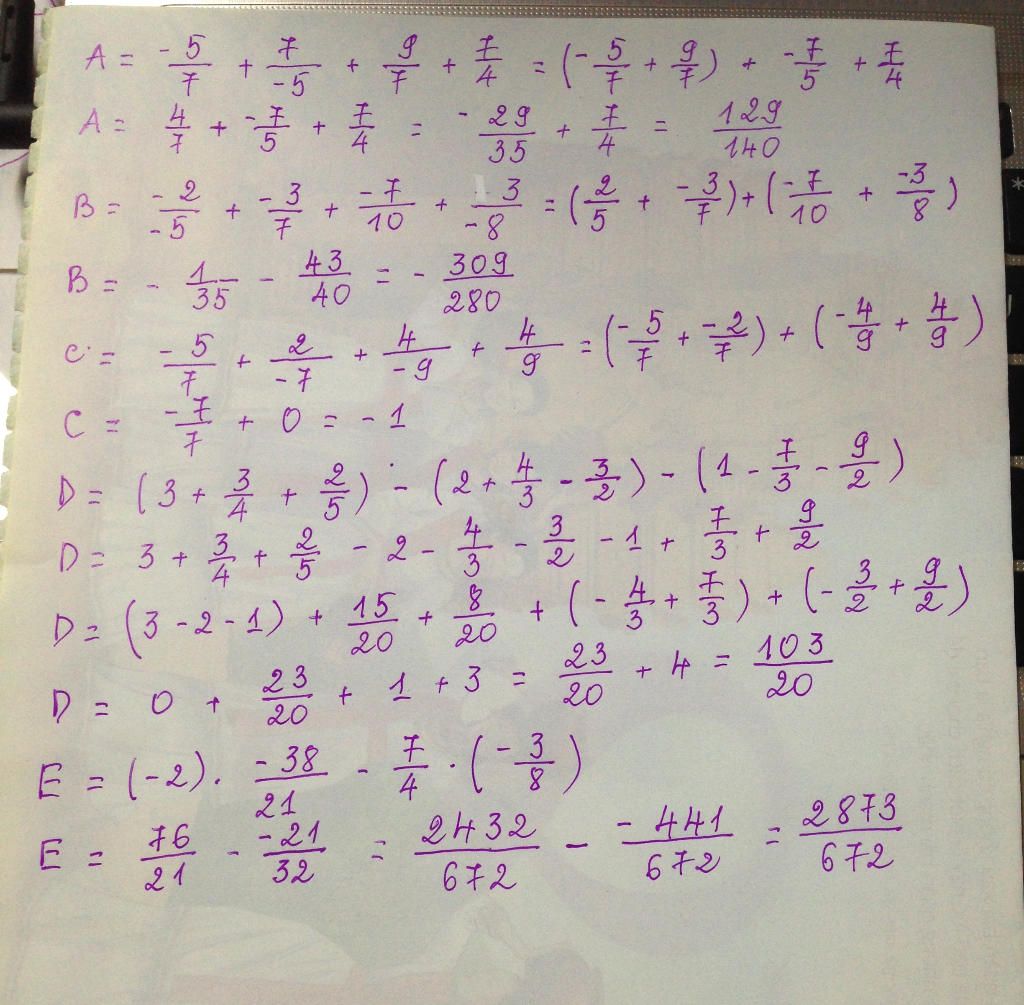 A = -5/7 + 7/-5 + 9/7 + 7/4 = (-5/7 + 9/7) + -7/5 + 7/4
A = 4/7 + -7/5 + 7/4 = -29/35 + 7/4 = 129/140
B = -2/-5 + -3/7 + -7/10 + 3/-8 = (2/5 + -3/7) + (-7/10 + -3/8)
B = - 1/35 - 43/40 = - 309/280
C = -5/7 + 2/-7 + 4/-9 + 4/9 = (-5/7 + -2/7) + (-4/9 + 4/9)
C = -7/7 + 0 = -1
D = (3 + 3/4 + 2/5) - (2 + 4/3 - 3/2) - (1 - 7/3 - 9/2)
D = 3 + 3/4 + 2/5 - 2 - 4/3 - 3/2 - 1 + 7/3 + 9/2
D = (3 - 2 - 1) + 15/20 + 8/20 + (-4/3 + 7/3) + (-3/2 + 9/2)
D = 0 + 23/20 + 1 + 3 = 23/20 + 4 = 103/20
E = (-2) . -38/21 - 7/4 . (-3/8)
E = 76/21 - -21/32 = 2432/672 - -441/672 = 2873/672